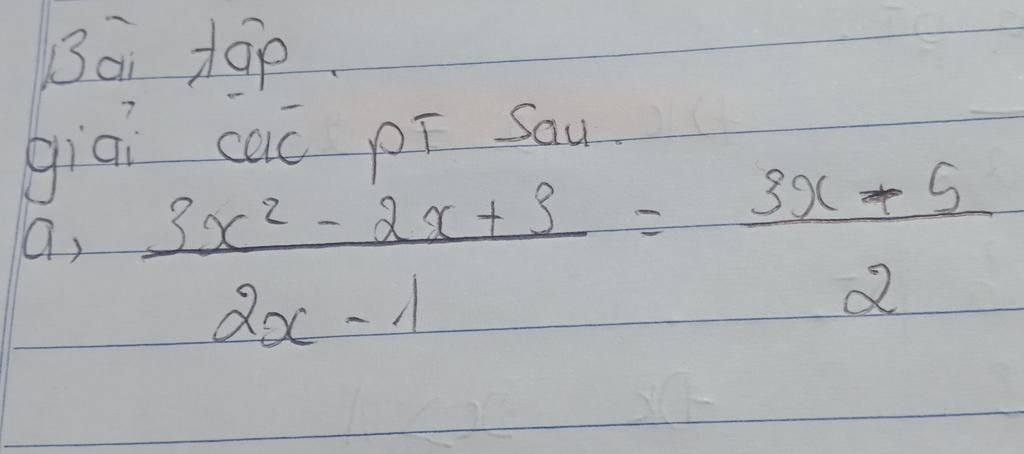 Bài tập.
giải các pT sau.
a, 3x² - 2x + 3 = 3x - 5
2x - 1 2